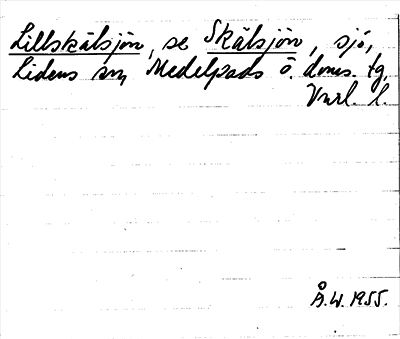 Lillskälsjön, se Skälsjön, sjö,
Lidens sn, Medelpads ö. doms. tg,
Vnrl. l.
Å.W. 1955.